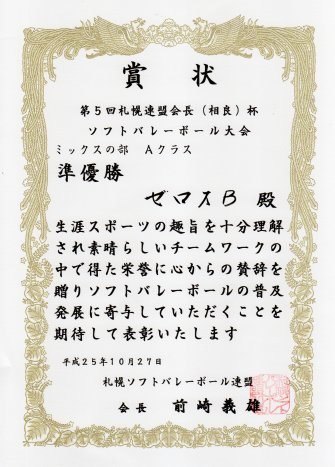 賞状
第5回札幌連盟会長(相良)杯
ソフトバレーボール大会
ミックスの部 Aクラス
準優勝
ゼロスB 殿
生涯スポーツの趣旨を十分理解
され素晴らしいチームワークの
中で得た栄誉に心からの賛辞を
贈りソフトバレーボールの普及
発展に寄与していただくことを
期待して表彰いたします
平成25年10月27日
札幌ソフトバレーボール連盟
会長 前崎義雄